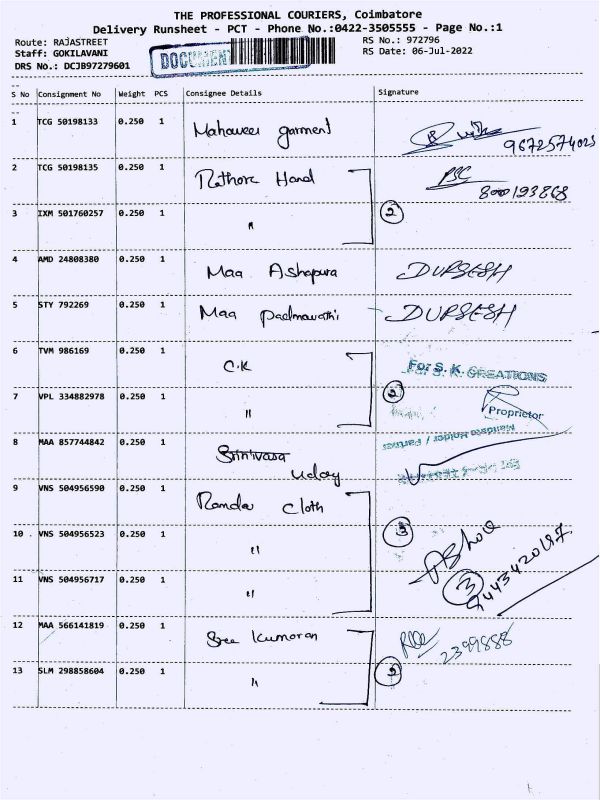 THE PROFESSIONAL COURIERS, Coimbatore
Delivery Runsheet - PCT - Phone No.:0422-3505555 - Page No.:1
Route: RAJASTREET
Staff: GOKILAVANI
DRS No.: DCJB97279601
DOCUMENT
RS No.: 972796
RS Date: 06-Jul-2022
S No Consignment No Weight PCS Consignee Details Signature
1 TCG 50198133 0.250 1 Mahaveer garment 9672574023
2 TCG 50198135 0.250 1 Rathore Hand 800193868
3 IXM 501760257 0.250 1 " 2
4 AMD 24808380 0.250 1 Maa Ashapura DURGESH
5 STY 792269 0.250 1 Maa Padmavathi DURGESH
6 TVM 986169 0.250 1 C.K For S. K. CREATIONS
7 VPL 334882978 0.250 1 " 2 Proprietor
8 MAA 857744842 0.250 1 Srinivasa Mandate Holder / Partner
uday
9 VNS 504956590 0.250 1 Randa Cloth
10 . VNS 504956523 0.250 1 " 3
11 VNS 504956717 0.250 1 " 3
12 MAA 566141819 0.250 1 Sree Kumaran 2399888
13 SLM 298858604 0.250 1 " 2